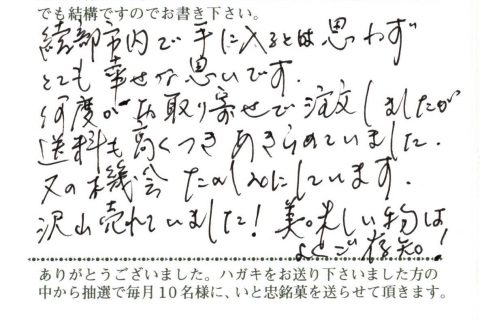 でも結構ですのでお書き下さい。
綾部市内で手に入るとは思わず
とても幸せな思いです。
何度かお取り寄せで注文しましたが
送料も高くつきあきらめていました。
又の機会たのしみにしています。
沢山売れていました!美味しい物は
よくご存知!
ありがとうございました。ハガキをお送り下さいました方の
中から抽選で毎月10名様に、いと忠銘菓を送らせて頂きます。